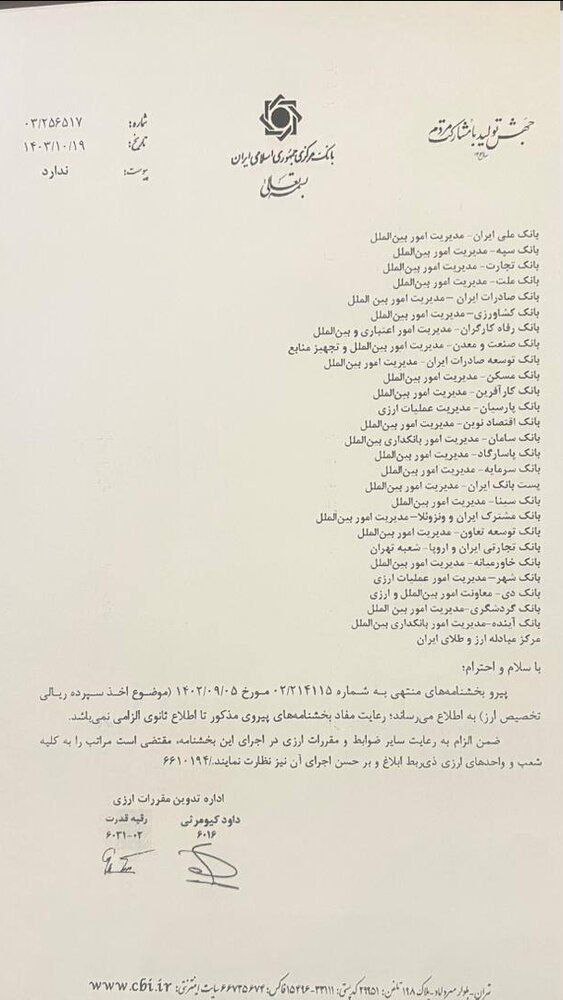 جهش تولید با مشارکت مردم
بانک مرکزی جمهوری اسلامی ایران
بسمه تعالی
شماره: ۰۳/۲۵۶۵۱۷
تاریخ: ۱۴۰۳/۱۰/۱۹
پیوست: ندارد
بانک ملی ایران- مدیریت امور بین‌الملل
بانک سپه- مدیریت امور بین‌الملل
بانک تجارت- مدیریت امور بین‌الملل
بانک ملت- مدیریت امور بین‌الملل
بانک صادرات ایران –مدیریت امور بین الملل
بانک کشاورزی– مدیریت امور بین‌الملل
بانک رفاه کارگران- مدیریت امور اعتباری و بین‌الملل
بانک صنعت و معدن- مدیریت امور بین‌الملل و تجهیز منابع
بانک توسعه صادرات ایران- مدیریت امور بین‌الملل
بانک مسکن- مدیریت امور بین‌الملل
بانک کارآفرین - مدیریت امور بین‌الملل
بانک پارسیان- مدیریت عملیات ارزی
بانک اقتصاد نوین- مدیریت امور بین‌الملل
بانک سامان- مدیریت امور بانکداری بین‌الملل
بانک پاسارگاد- مدیریت امور بین‌الملل
بانک سرمایه- مدیریت امور بین‌الملل
پست بانک ایران- مدیریت امور بین‌الملل
بانک سینا- مدیریت امور بین‌الملل
بانک مشترک ایران و ونزوئلا–مدیریت امور بین‌الملل
بانک توسعه تعاون- مدیریت امور بین‌الملل
بانک تجارتی ایران و اروپا- شعبه تهران
بانک خاورمیانه- مدیریت امور بین‌الملل
بانک شهر–مدیریت امور عملیات ارزی
بانک دی- معاونت امور بین‌الملل و ارزی
بانک گردشگری-مدیریت امور بین الملل
بانک آینده-مدیریت امور بانکداری بین‌الملل
مرکز مبادله ارز و طلای ایران
با سلام و احترام؛
پیرو بخشنامه‌های منتهی به شماره ۰۲/۲۱۴۱۱۵ مورخ ۱۴۰۲/۰۹/۰۵ (موضوع اخذ سپرده ریالی
تخصیص ارز) به اطلاع می‌رساند؛ رعایت مفاد بخشنامه‌های پیروی مذکور تا اطلاع ثانوی الزامی نمی‌باشد.
ضمن الزام به رعایت سایر ضوابط و مقررات ارزی در اجرای این بخشنامه، مقتضی است مراتب را به کلیه
شعب و واحدهای ارزی ذی‌ربط ابلاغ و بر حسن اجرای آن نیز نظارت نمایند./۶۶۱۰۱۹۴
اداره تدوین مقررات ارزی
داود کیومرثی رقیه قدرت
۶۰۱۶ ۶۰۳۱-۰۲
تهران- بلوار میرداماد- پلاک ۱۹۸ تلفن: ۲۹۹۵۱ کدپستی: ۳۳۱۱۱-۱۵۴۹۶ فاکس: ۶۶۷۳۵۶۷۴ سایت اینترنتی: www.cbi.ir